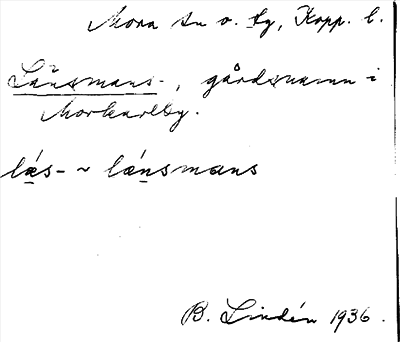 Mora sn o. tg, Kopp. l.
Länsmans-, gårdsnamn i
Morkarlby.
lä́s- ~ lä́nsmans
B. Lindén 1936.